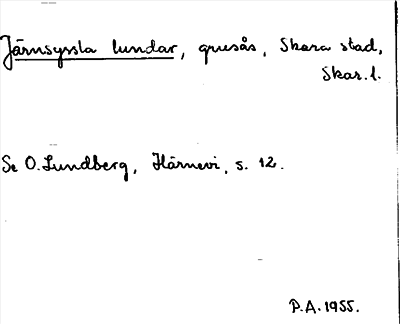 Järnsyssla lundar, grusås, Skara stad,
Skar. l.
Se O. Lundberg, Härnevi, s. 12.
P.A. 1955.